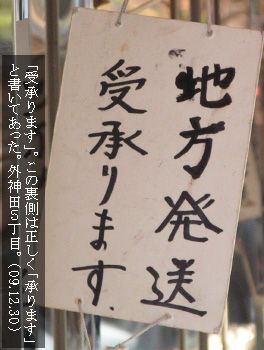 地方発送
受承ります.
「受承ります」。この裏側は正しく「承ります」
と書いてあった。外神田5丁目。（09.12.30）